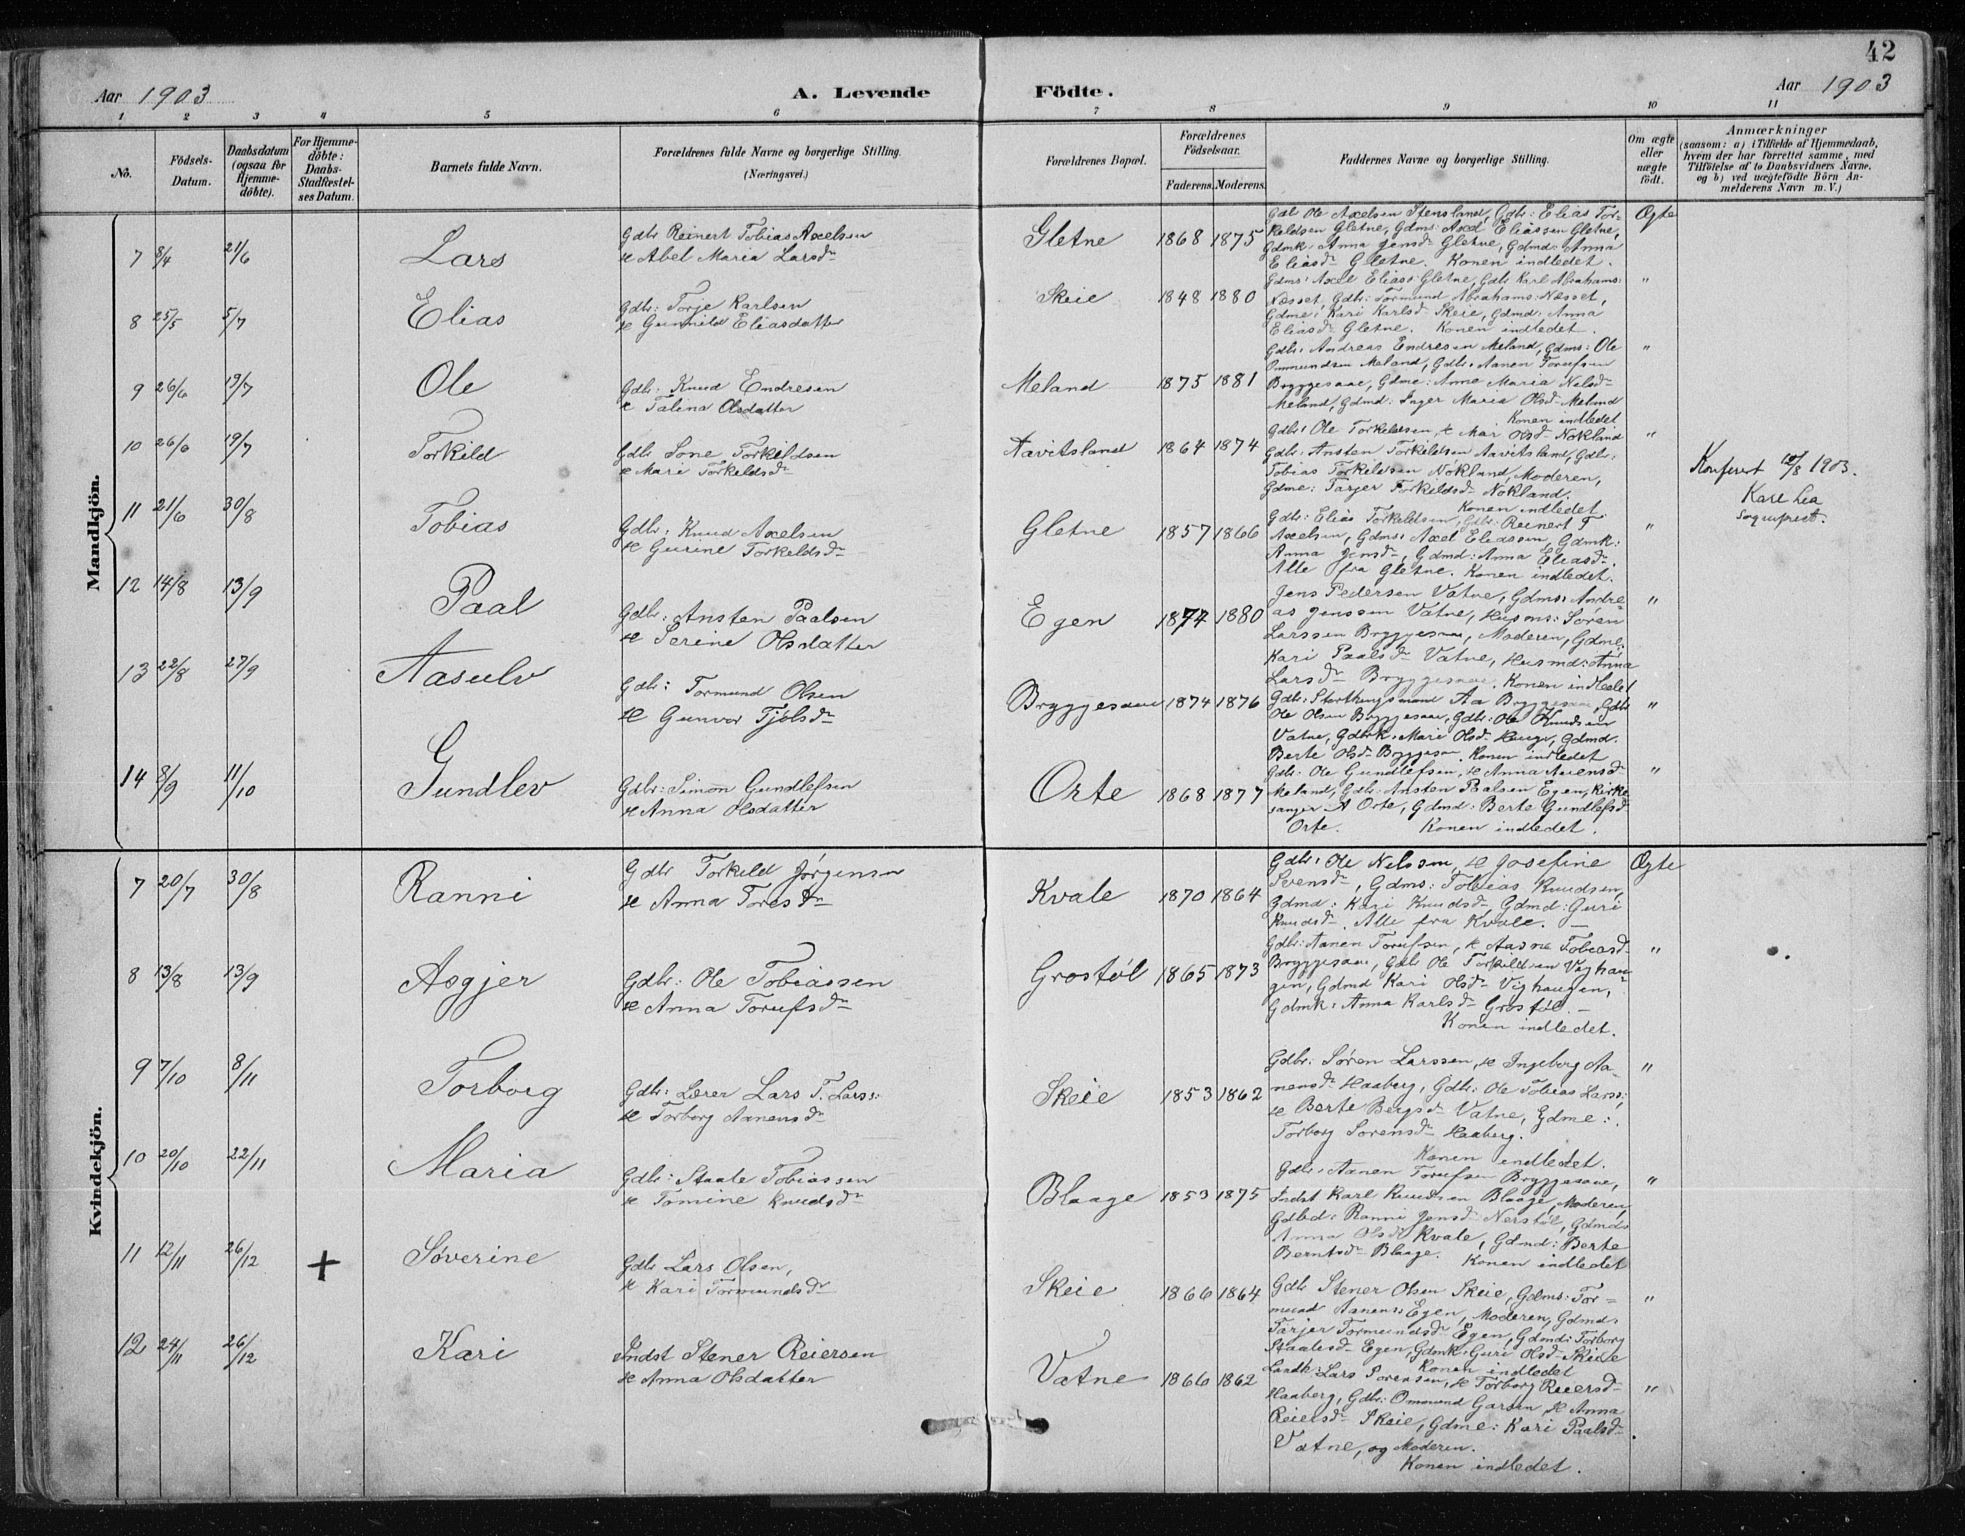 42
Aar 1903
A. Levende
Födte.
Aar 1903
1 2 3 4 5 6 7 8 9 10 11
No.
Födsels-
Datum.
Daabsdatum
(ogsaa for
Hjemme-
döbte).
For Hjemme-
döbte:
Daabs-
Stadfæstel-
ses Datum.
Barnets fulde Navn.
Forældrenes fulde Navne og borgerlige Stilling.
(Næringsvei.)
Forældrenes Bopæl.
Forældrenes
Födselsaar.
Faderens. Moderens.
Faddernes Navne og borgerlige Stilling.
Om ægte
eller
uægte
födt.
Anmærkninger
(saasom: a) i Tilfælde af Hjemmedaab,
hvem der har forrettet samme, med
Tilföielse af to Daabsvidners Navne,
og b) ved uægtefödte Börn An-
melderens Navn m. V.)
Mandkjön.
7 8/4 21/6 Lars
Gdbr Reinert Tobias Axelsen
& Abel Maria Larsdr
Gletne 1868 1875
Gdb Ole Axelsen Stensland, Gdbr: Elias Tor-
keldsen Gletne, Gdms: Axel Eliassen Gletne,
Gdmk: Anna Jensdr Gletne, Gdmd: Anna
Eliasdr Gletne. Konen indledet.
Ægte
8 25/5 5/7 Elias
Gdbr: Torje Karlsen
& Gunnild Eliasdatter
Skeie 1848 1880
Gdms: Axel Elias: Gletne, Gdb Karl Abrahams:
Næsset, Gdbr: Tormund Abrahams: Næsset,
Gdme: Kari Karlsdr Skeie, Gdmd: Anna
Eliasdr Gletne. Konen indledet.
"
9 26/6 19/7 Ole
Gdbr: Knud Endresen
& Talina Olsdatter
Meland 1875 1881
Gdbr: Andreas Endresen Meland, Gdms: Ole
Ommundsen Meland, Gdbr: Aanen Torufsen
Bryggesaae, Gdme: Anne Maria Nelsdr
Meland, Gdmd: Inger Maria Olsdr Meland
Konen indledet
"
10 26/6 19/7 Torkild
Gdbr Lone Torkildsen
& Mari Torkeldsdr
Aavitsland 1864 1874
Gdbr: Ole Torkeldsen, & Mari Olsdr Nokland
Gdbr: Ansten Torkildsen Aavitsland, Gdbr:
Tobias Torkeldsen Nokland, Moderen,
Gdme: Tarjer Torkeldsdr Nokland.
Konen indledet.
"
Konferert 10/8 1903.
Kare Lea
Sogneprest.
11 21/6 30/8 Tobias
Gdbr: Knud Axelsen
& Gurine Torkeldsdr
Gletne 1857 1866
Gdbr: Elias Torkeldsen, Gdbr: Reinert T
Axelsen, Gdms: Axel Eliassen, Gdmk:
Anna Jensdr, Gdmd: Anna Eliasdr.
Alle fra Gletne. Konen indledet.
"
12 14/8 13/9 Paal
Gdbr: Ansten Paalsen
& Serine Olsdatter
Egen 1877 1880
Jens Pedersen Vatne, Gdms: Andre-
as Jenssen Vatne, Husms: Søren
Larssen Bryggesaae, Moderen, Gdme:
Kari Paalsdr Vatne, Husmd: Anna
Larsdr Bryggesaae. Konen indledet
"
13 22/8 27/9 Aasulv
Gdbr: Tormund Olsen
& Gunvor Tjølsdr
Bryggesaae 1874 1876
Gdbr: Storthingsmand Aa Bryggesaae, Gdbr
Ole Olsen Bryggesaae, Gdbr: Ole Knudsen
Vatne, Gdbrk: Mari Olsdr Hauge, Gdmd.
Berte Olsdr Bryggesaa. Konen indledet
"
14 8/9 11/10 Gundlev
Gdbr: Simon Gundlefsen
& Anna Olsdatter
Orte 1868 1877
Gdbr: Ole Gundlefsen, & Anna Aanensdr
Meland, Gdbr: Ansten Paalsen Egen, Kirke-
sanger A Orte, Gdmd: Berte Gundlefsdr
Orte. Konen indledet.
"
Kvindekjön.
7 20/7 30/8 Ranni
Gdbr Torkeld Jørgensen
& Anna Toresdr
Kvale 1870 1864
Gdbr: Ole Nelssen, & Josefine
Svensdr, Gdms: Tobias Knudsen,
Gdmd: Kari Knudsdr, Gdmd: Guri
Knudsdr. Alle fra Kvale. —
Ægte
8 13/8 13/9 Asgjer
Gdbr: Ole Tobiassen
& Anna Torufsdr
Grostøl 1865 1873
Gdbr: Aanen Torufsen, & Aasne Tobiasdr
Bryggesaae, Gdb Ole Torkildsen Vighau-
gen, Gdmd Kari Olsdr Vighaugen,
Gdmk: Anna Karlsdr Grostøl. —
Konen indledet.
"
9 7/10 8/11 Torborg
Gdbr: Lærer Lars T. Larss:
& Torborg Aanensdr
Skeie 1853 1862
Gdbr: Søren Larssen, & Ingeborg Aa-
nensdr Haaberg, Gdbr: Ole Tobias Larss:
& Berte Bergsdr Vatne, Gdme:
Torborg Sørensdr Haaberg.
Konen indledet.
"
10 20/10 22/11 Maria
Gdbr: Staale Tobiassen
& Tomine Knudsdr
Blaage 1853 1875
Gdbr: Aanen Torufsen Bryggesaae,
Indst Karl Knudsen Blaage, Moderen,
Gdmd: Ranni Jensdr Nerstøl, Gdmd:
Anna Olsdr Kvale, Gdmd: Berte
Berntsdr Blaage. Konen indledet
"
11 12/11 26/12 + Søverine
Gdbr Lars Olsen,
& Kari Tormundsdr
Skeie 1866 1864
Gdbr Stener Olsen Skeie, Gdms: Tor-
mund Aanens: Egen, Moderen, Gdmd:
Tarjer Tormundsdr Egen, Gdmd: Torborg
Staalesdr Egen, Gdmk: Guri Olsdr Skeie
Konen indledet
"
12 24/11 26/12 Kari
Indst Stener Reiersen
& Anna Olsdatter
Vatne 1866 1862
Landh: Lars Sørensen, & Torborg Reiersdr
Haaberg, Gdbr: Ommund Garsen, & Anna
Reiersdr Skeie, Gdme: Kari Paalsdr
Vatne, og Moderen.
Konen indledet.
"